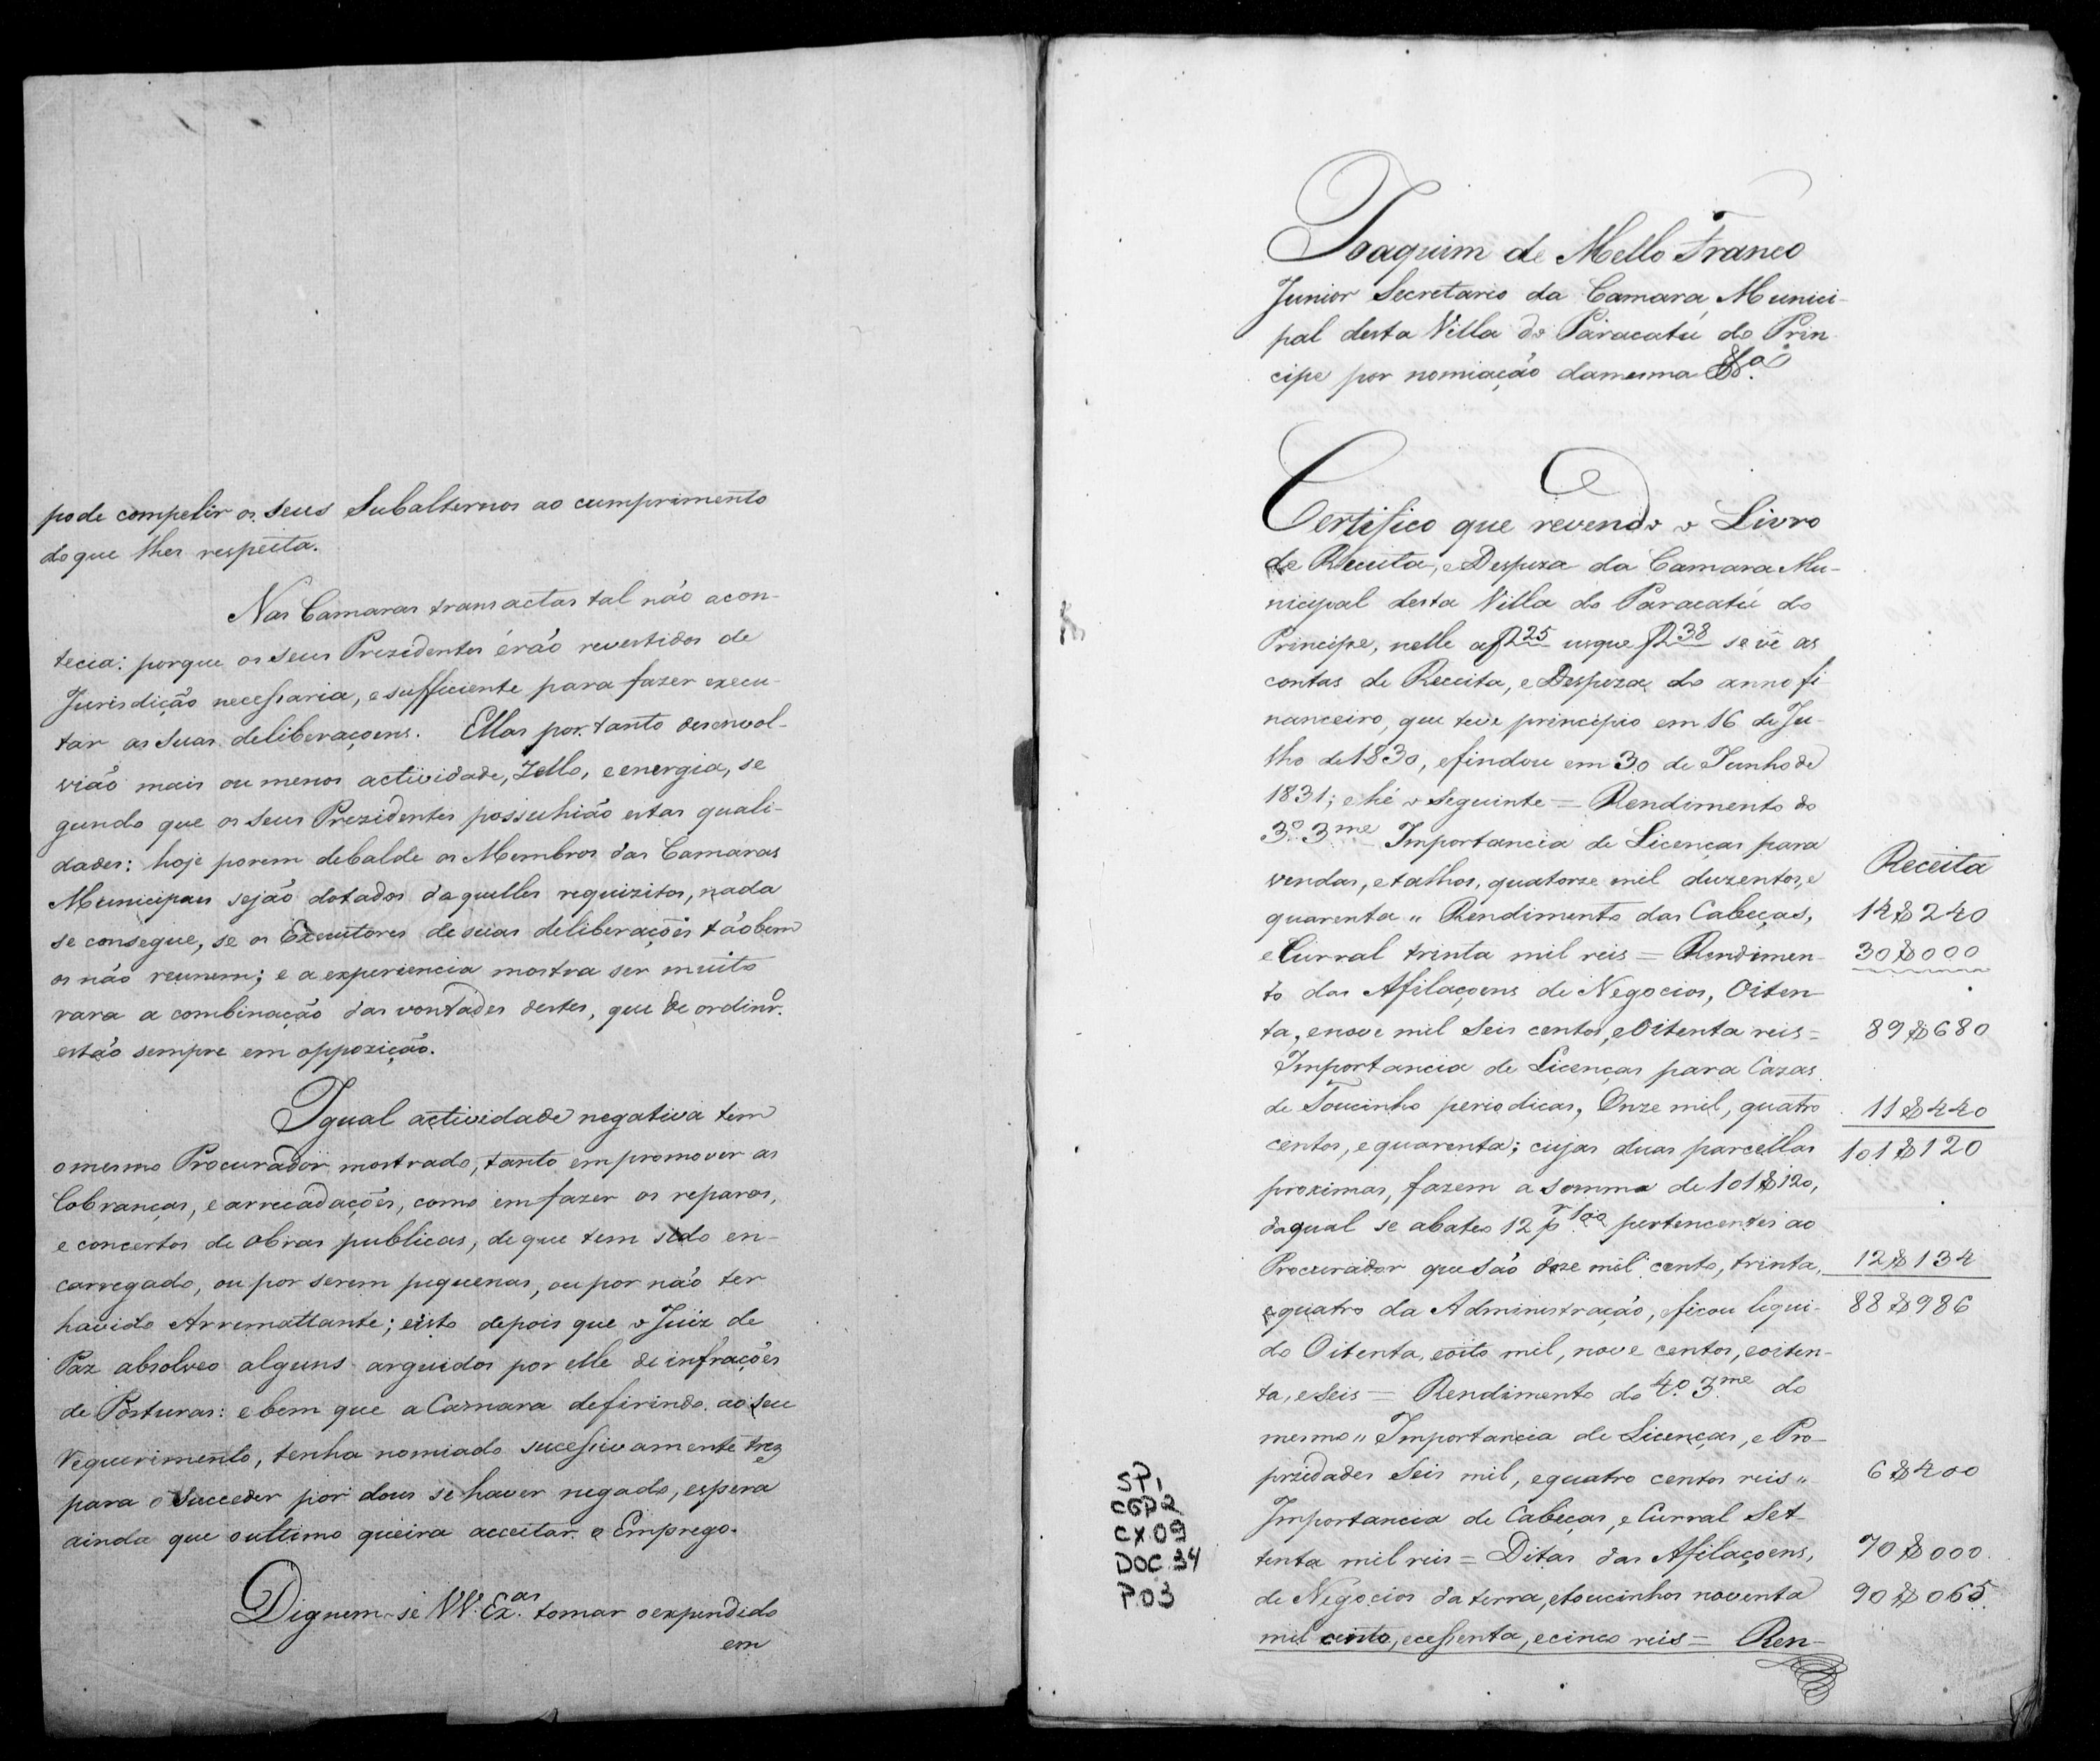 pode compelir os seus Subalternos ao cumprimento
do que lhes respeita.
Nas Camaras transactas tal não acon-
tecia: porque os seus Prezidentes érão revestidos de
Jurisdição necessaria, e sufficiente para fazer execu-
tar as suas deliberaçoens. Ellas por tanto desenvol-
vião mais ou menos actividade, Zello, e energia, se
gundo que os seus Prezidentes possuhião estas quali-
dades: hoje porem debalde os Membros das Camaras
Municipaes sejão dotados daquelles requizitos, nada
se consegue, se os Executores de suas deliberações tãobem
os não reunem; e a experiencia mostra ser muito
rara a combinação das vontades destes, que de ordinr.º
estão sempre em oppozição.
Igual actividade negativa tem
o mesmo Procurador mostrado, tanto em promover as
Cobranças, e arrecadações, como em fazer os reparos,
e concertos de obras publicas, de que tem sido en-
carregado, ou por serem piquenas, ou por não ter
havido Arremattante; e isto depois que o Juiz de
Paz absolveo alguns arguidos por elle de infrações
de Posturas: e bem que a Camara defirindo ao seu
requerimento, tenha nomiado sucessivamente trez
para o succeder por dous se haver negado, espera
ainda que o ultimo queira acceitar o Emprego.
Dignem-se VV. Ex.as tomar o expendido
em
Joaquim de Mello Franco
Junior Secretario da Camara Munici-
pal desta Villa do Paracatú do Prin-
cipe por nomiação da mesma &.a
Certifico que revendo o Livro
de Receita, e Despeza da Camara Mu-
nicipal desta Villa do Paracatú do
Principe, nelle a f 25 usque f 38 se vê as
contas de Receita, e Despeza do anno fi
nanceiro, que teve principio em 16 de Ju-
lho de 1830, e findou em 30 de Junho de
1831; e hé o seguinte = Rendimento do
3.º 3.me Importancia de Licenças para
Receita
vendas, e talhos, quatorze mil duzentos, e
quarenta " Rendimento das Cabeças, 14$240
e Curral trinta mil reis = Rendimen- 30$000
to das Afilaçoens de Negocios, Oiten-
ta, e nove mil seis centos, e Oitenta reis = 89$680
Importancia de Licenças para Cazas
de Toucinho periodicas, Onze mil, quatro 11$440
centos, e quarenta; cujas duas parcellas 101$120
proximas, fazem a somma de 101$120,
da qual se abateo 12 p 100 pertencentes ao
Procurador que são doze mil cento, trinta, 12$134
e quatro da Administração, e ficou liqui- 88$986
do Oitenta, e oito mil, nove centos, e oiten-
ta, e seis = Rendimento do 4.º 3.me do
mesmo " Importancia de Licenças, e Pro-
priedades Seis mil, e quatro centos reis " 6$400
Importancia de Cabeças, e Curral Set-
tenta mil reis = Ditas das Afilaçoens, 70$000
de Negocios da terra, e toucinhos noventa 90$065
mil cento, e cessenta, e cinco reis = Ren-
SP1
CGP2
CX09
DOC.34
P.03